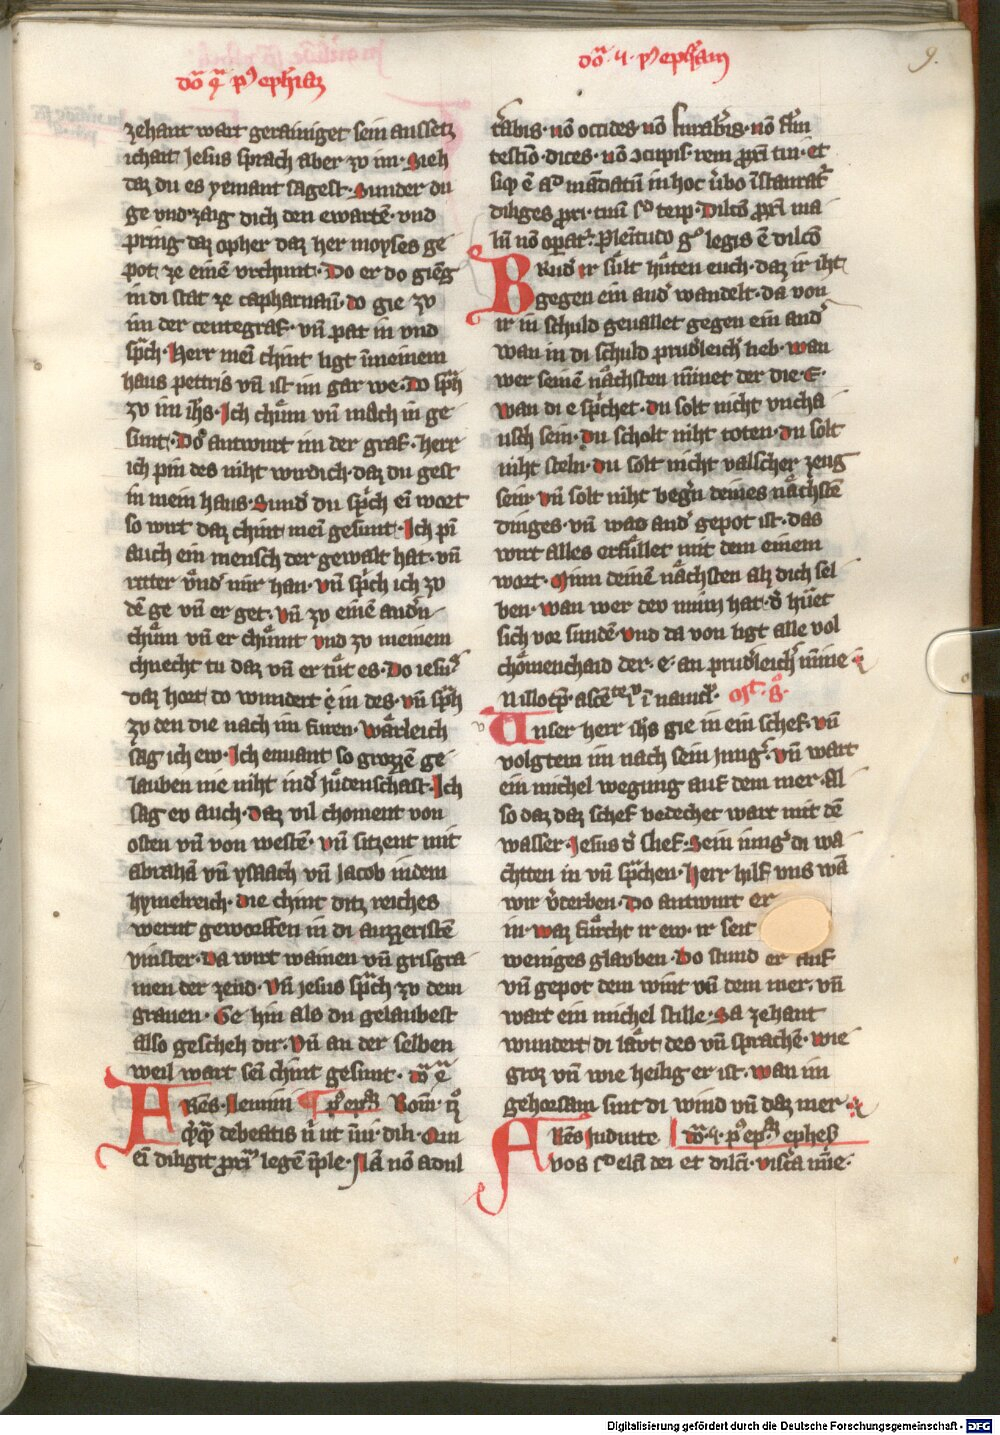 dōᵃ qᵃ pꝰ eph̄iaꝫ
dōᵃ 4 · pꝰ eph̄iam
9.
zehant wart gerainiget sein aussetz
ichait Jesus sprach aber zv im · Sieh
daz du es yemant sagest · Sunder du
ge vnd zaig dich den ewartē · vnd
pring daz opher daz her moyses ge
pot ze einē vrchunt · Do er do gieng
in di stat ze capharnaū · do gie zv
im der centegraf · vn̄ pat in vnd
sp̄ch · Herr mei chint ligt in meinem
haus pettris vn̄ ist im gar we · Do sp̄ch
zv im ih̄s · Ich chům vn̄ mach in ge
sunt · Do antwurt im der graf · herr
ich pin des niht wirdich · daz du gest
in mein haus · Sund̾ du sp̄ch ei wort
so wirt daz chint mei gesunt · Ich pī
auch ein mensch der gewalt hat · vn̄
ritter vnd̾ mir han · vn̄ sp̄ch ich zv
dē ge vn̄ er get · vn̄ zv einē andn̾
chům vn̄ er chůmt vnd zv meinem
chnecht tu daz vn̄ er tůt es · Do iesus
daz hort do wundert ē in des · vn̄ sp̄ch
zv den die nach im furen · wärleich
sag ich ew · Ich envant so grozzē ge
lauben nie niht ind̾ Jůdenschaft · Ich
sag ev auch · daz vil choment von
osten vn̄ von westē · vn̄ sitzent mit
abrahā vn̄ ysaach vn̄ Jacob in dem
hymelreich · die chint ditz reiches
wernt geworffen in di auzzeristē
vinster · Da wirt wainen vn̄ grisgra
men der zend · Vn̄ Jesus sp̄ch zv dem
grauen · Ge hin als du gelaubest
also gescheh dir · Vn̄ an der selben
weil wart sei chint gesunt · dōᵃ qᵃ
FRēs · Nemini pꝰ eph̄ Rom̄
q̄q̄ debeatis n̄ ut īuicē dili · Qui
ei diligit prox̄ legē īple · Nā nō adul
tābis · nō occides nō furab̾is · nō fl̄m
testīo · dices · nō ↄcupis · rem prox̄i tui · et
siqͥ ē ad̾ mādatū in hoc v̾bo īstauratˀ
diliges prox̄i · tuū sͨ teip̄ · Dilcō prox̄i ma
lū nō operatˀ · Plenitudo gͦ legis ē dilcō
BRud̾ ir sůlt hůten euch · daz ir iht
gegen ein and̾ wandelt · da von
ir in schuld geuallet gegen ein and̾
wan in di schuld prud̾leich̾ lieb · wan
wer seinē nächsten minnet der die · E ·
Wan di e sp̄ichet · du solt nicht vncha
usch sein · du scholt niht toten · du solt
niht steln · du solt nicht valscher zeug
sein · vn̄ solt niht beg̾n deines nächstē
dinges · vn̄ was and̾ gepot ist · das
wirt alles erfůllet mit dem einem
wort · Minn deinē nächsten alz dich sel
ben · wan wer dev minn hat · d̾ hůet
sich vor sundē · vnd da von ligt alle vol
chömenchaid der · e · an prud̾leich̾ minne
In illo tp̄ · ascēᵗᵉ ihͧ ī nauicl̾ · Mͭ · 8ͦ ·
Vnser herr ih̄s gie in ein schef · vn̄
volgtem im nach sein Jung̾ · vn̄ wart
ein michel wegung auf dem mer · Al
so daz daz schef bedechet wart mit dē
wasser · Jesus d̾ slief · Sein iung̾ di wa
chten in vn̄ sp̄chen · Herr hilf vns wā
wir v̾derben · Do antwurt er
in · waz fůrcht ir ew · ir seit
weniges glauben · Do stund er auf
vn̄ gepot dem wint vn̄ dem mer · vn̄
wart ein michel stille · Sa zehant
wundert di läwt des vn̄ sprachē · wie
groz vn̄ wie heilig er ist · wan im
gehorsam sint di wind vn̄ daz mer
FRēs Induite dōᵃ · 4 · pꝰ eph̄ ephes̄
vos sͨ electi dei et dilc̄i · viscͣa mīe ·
Digitalisierung gefördert durch die Deutsche Forschungsgemeinschaft - DFG